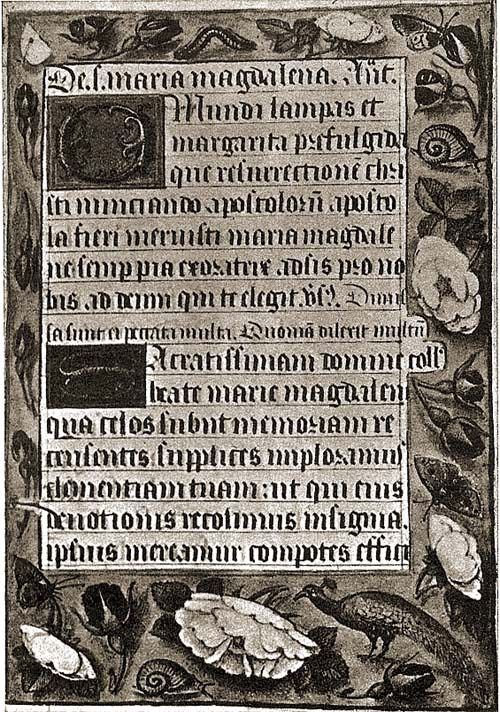 De s. maria magdalena. Añt.
O Mundi lampas et
margarita prefulgida
que resurrectionē chri
sti nunciando apostolorū aposto
la fieri meruisti maria magdale
ne semp pia exoratrix adsis pro no
bis ad deum qui te elegit. Dimis
sa sunt ei peccata multa. Quoniā dilexit multū
Sacratissimam domine coll
beate marie magdalen
qua celos subiit memoriam re
censentes supplices imploramus
clementiam tuam: ut qui eius
deuotionis recolimus insignia.
ipsius mereamur compotes effici